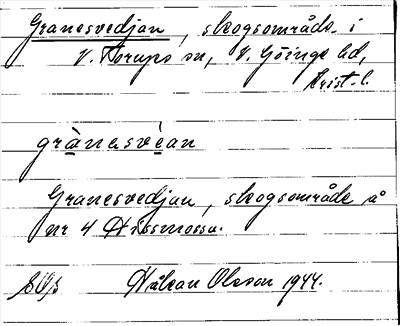 Granesvedjan, skogsområde i
V. Torups sn, V. Göinge hd,
Krist. l.
grànasvèan
Granesvedjan, skogsområde å
nr 4 Hissmossa.
Håkan Olsson 1944.